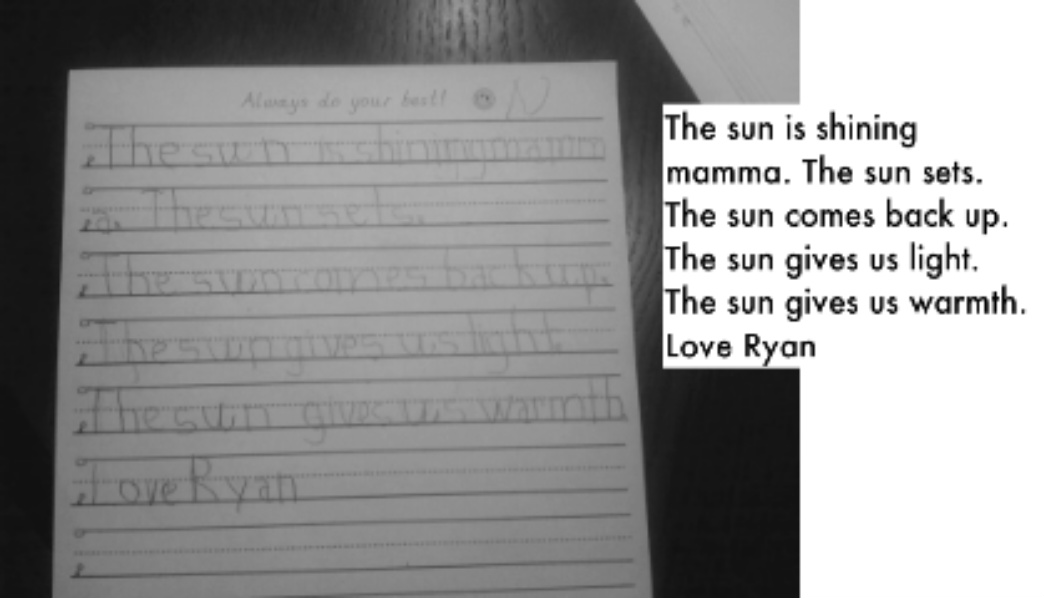 Always do your best! N
The sun is shining mamm
a. The sun sets.
The sun comes back up.
The sun gives us light
The sun gives us warmth
Love Ryan
The sun is shining
mamma. The sun sets.
The sun comes back up.
The sun gives us light.
The sun gives us warmth.
Love Ryan